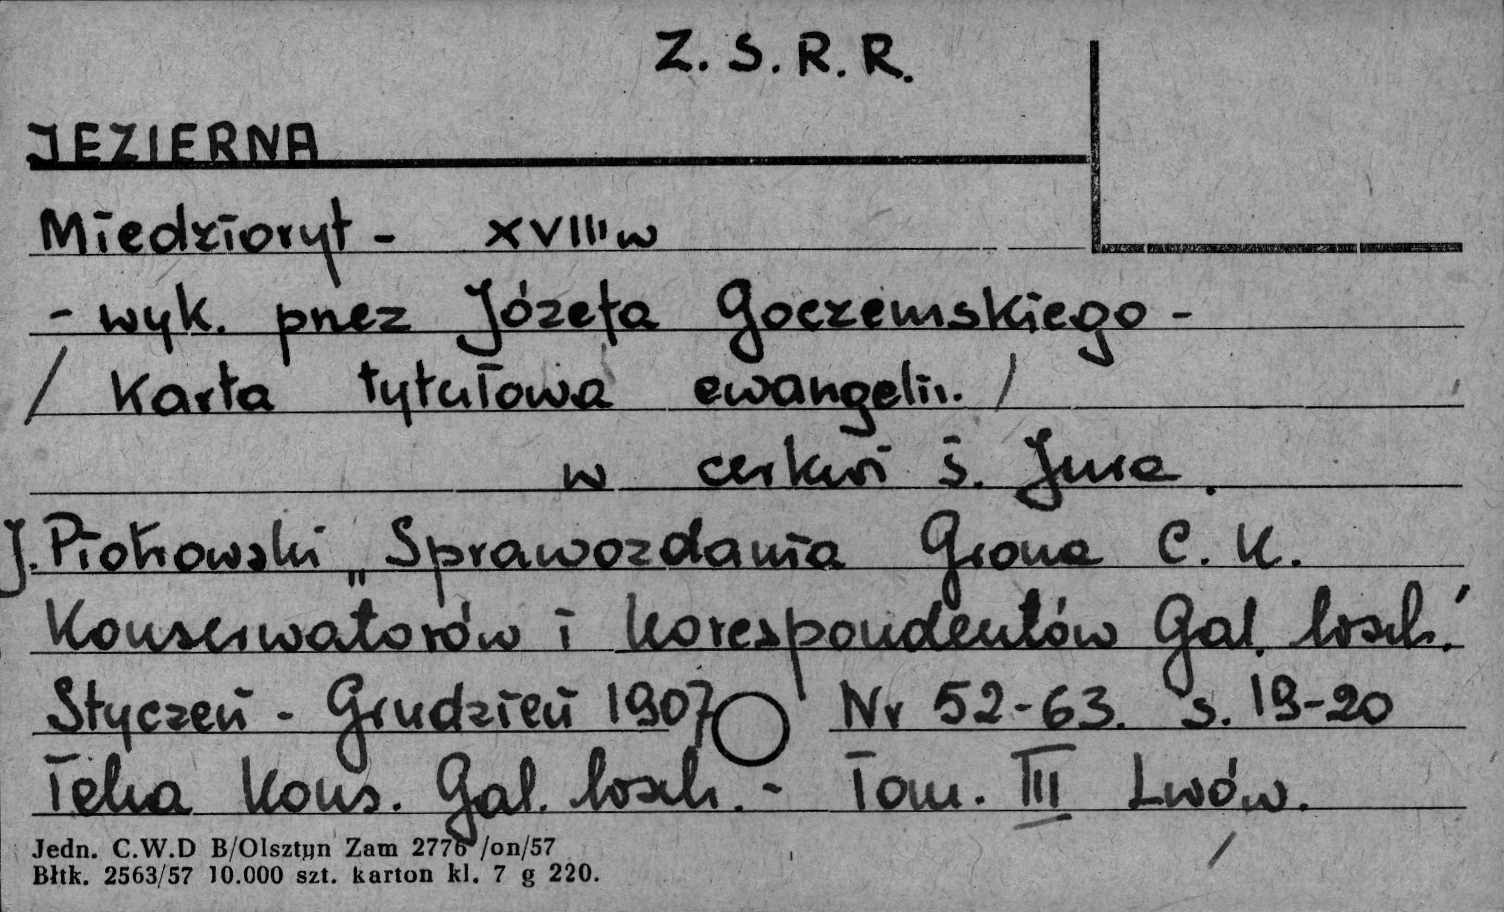 Z. S. R. R.
JEZIERNA
Miedzioryt - XVIII w
- wyk. przez Józefa Goczemskiego -
/ Karta tytułowa ewangelii. /
w cerkwi ś. Jura.
J. Piotrowski „Sprawozdania Grona C. K.
Konserwatorów i Korespondentów Gal. wsch."
Styczeń - Grudzień 1907 Nr 52-63. s. 19-20
Teka Kons. Gal. wsch. - Tom. III Lwów.
Jedn. C.W.D B/Olsztyn Zam 2776 /on/57
Błtk. 2563/57 10.000 szt. karton kl. 7 g 220.